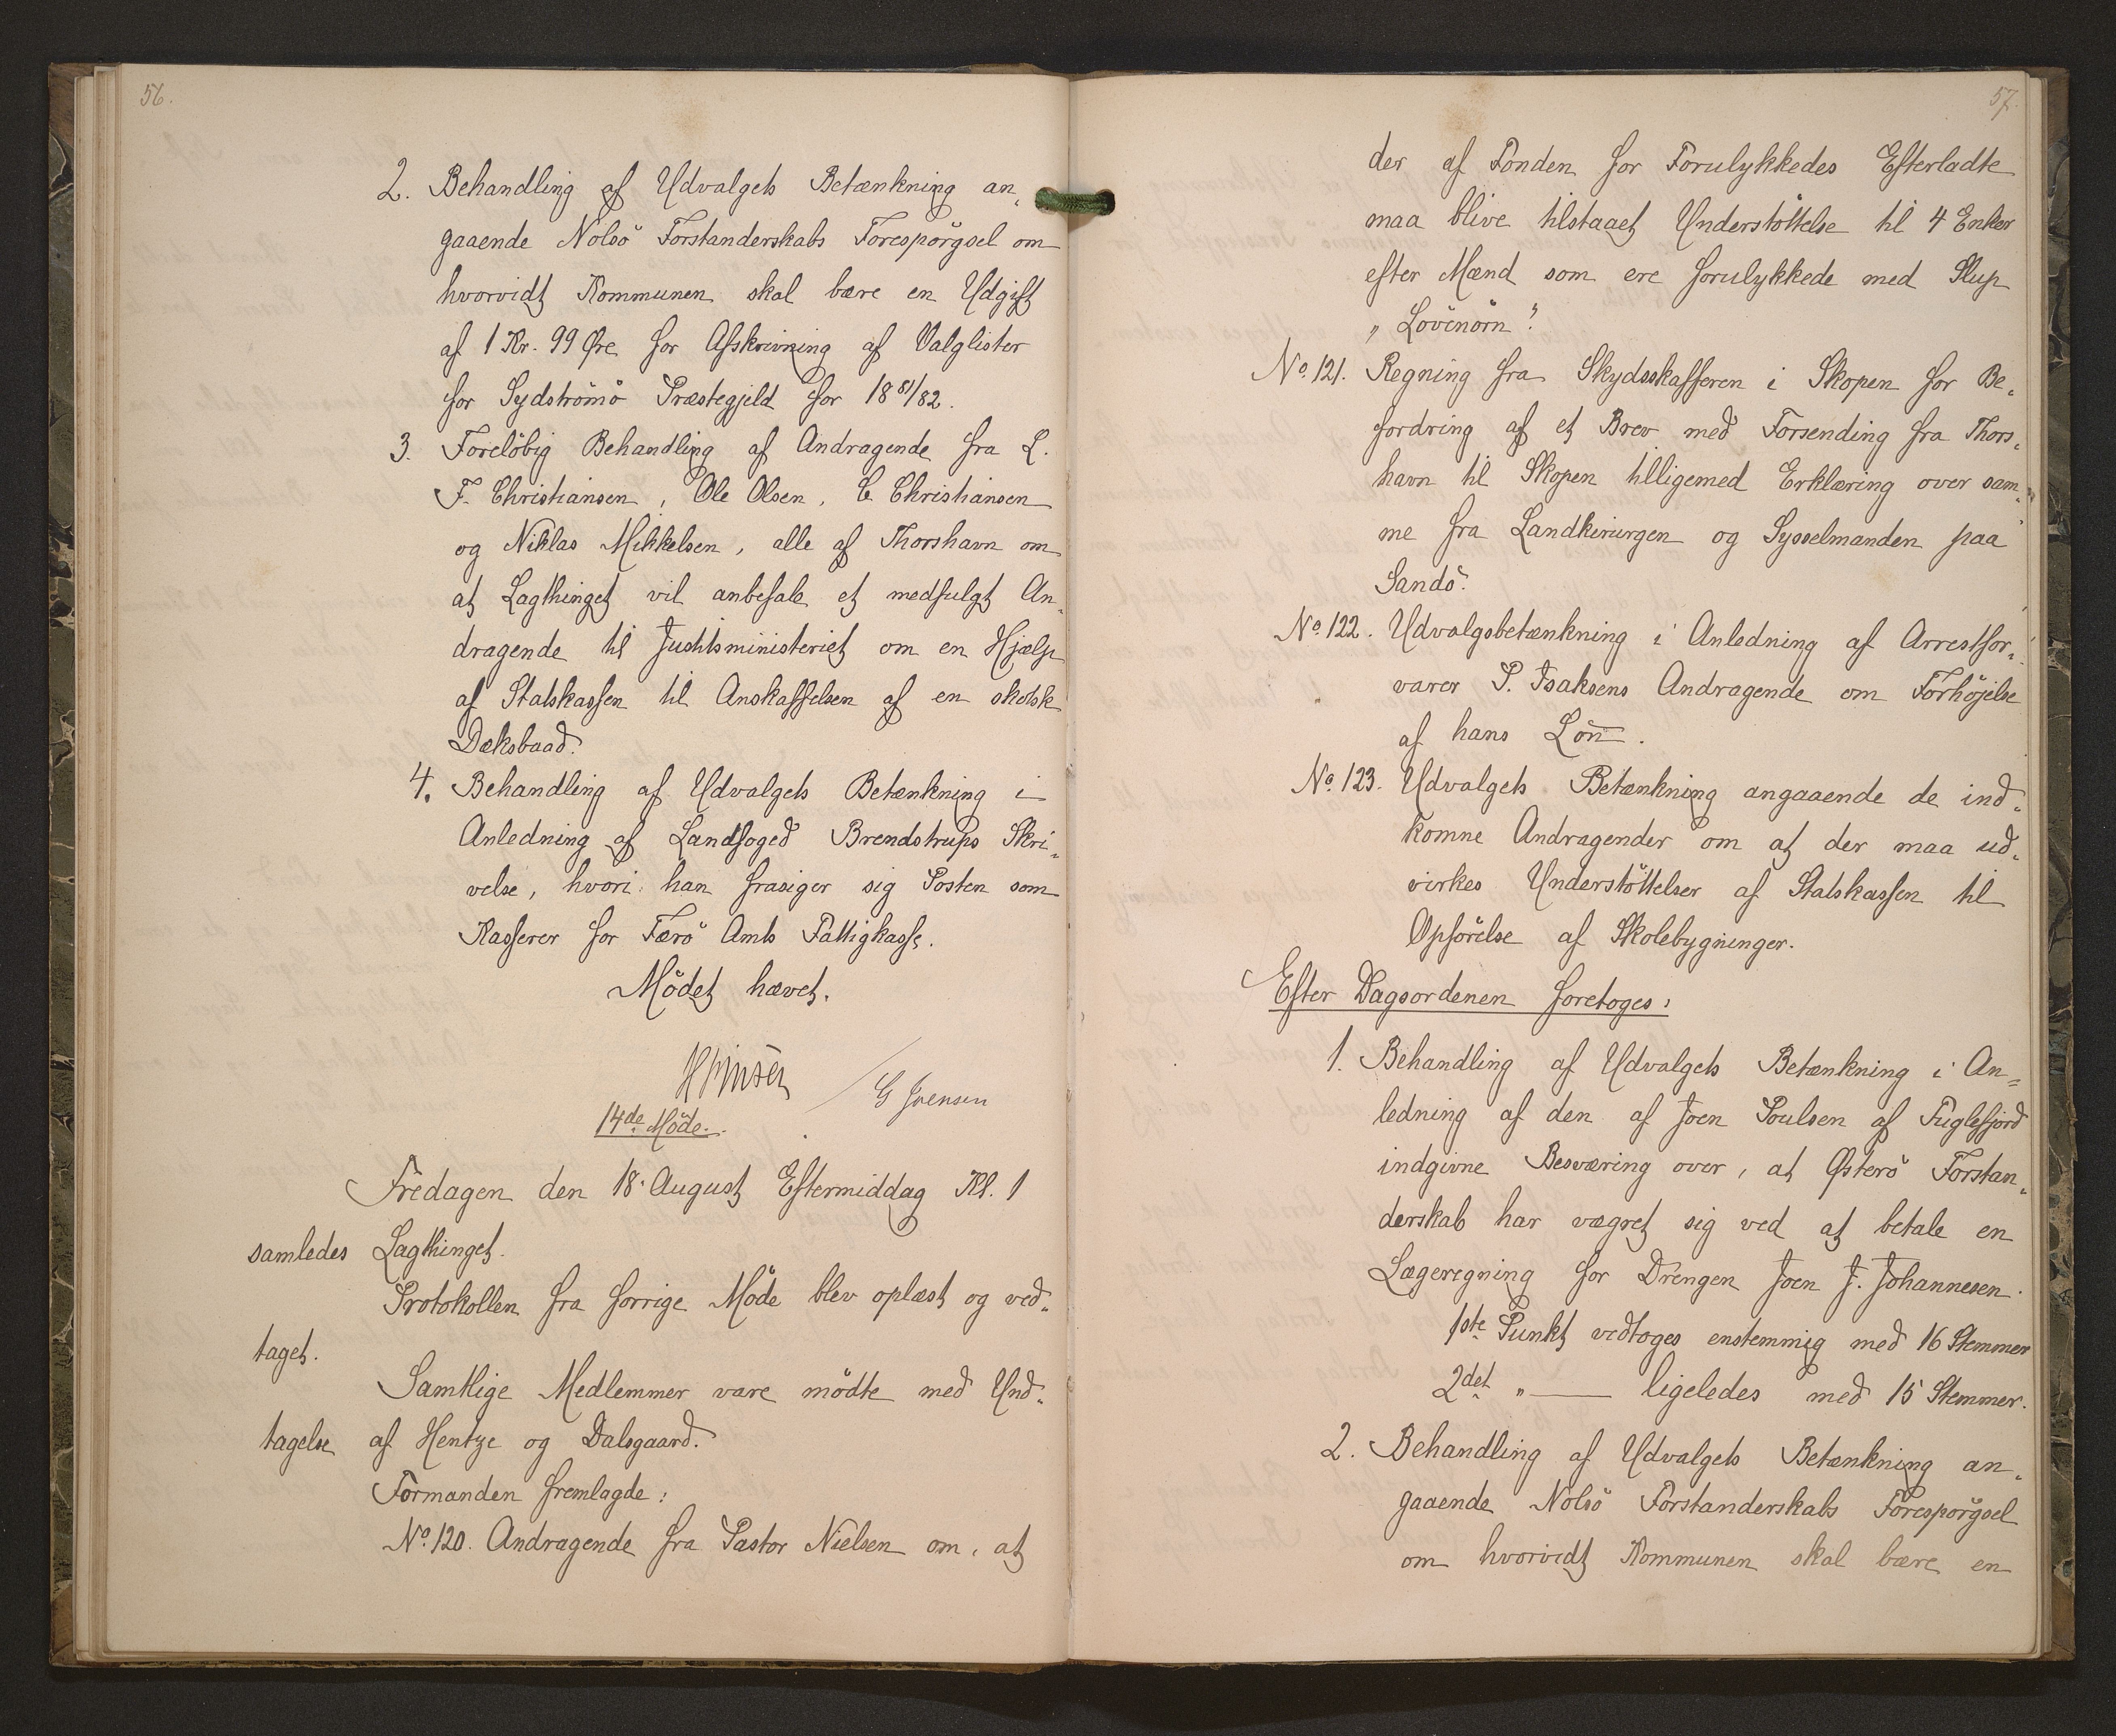 56.
2. Behandling af Udvalgets Betænkning an-
gaaende Nolsö Forstanderskabs Forespörgsel om
hvorvidt Kommunen skal bære en Udgift
af 1 Kr. 99 Øre for Afskrivning af Valglister
for Sydströmö Præstegjeld for 18 81/82.
3. Foreløbig Behandling af Andragende fra L.
F. Christiansen, Ole Olsen, C. Christiansen
og Niklas Mikkelsen, alle af Thorshavn om
at Lagthinget vil anbefale et medfulgt An-
dragende til Justitsministeriet om en Hjælp
af Statskassen til Anskaffelsen af en skotsk
Dæksbaad.
4. Behandling af Udvalgets Betænkning i
Anledning af Landfoged Brendstrups Skri-
velse, hvori han frasiger sig Posten som
Kasserer for Færö Amts Fattigkasse.
Mödet hævet.
G Joensen
14de Möde.
Fredagen den 18. August Eftermiddag Kl. 1
samledes Lagthinget.
Protokollen fra forrige Möde blev oplæst og ved-
taget.
Samtlige Medlemmer vare mödte med Und-
tagelse af Hentze og Dalsgaard.
Formanden fremlagde:
No. 120. Andragende fra Pastor Nielsen om, at
57.
der af Fonden for Forulykkedes Efterladte
maa blive tilstaaet Understöttelse til 4 Enker
efter Mænd som ere forulykkede med Slup
„Lövenörn“.
No. 121. Regning fra Skydsskafferen i Skopen for Be-
fordring af et Brev med Forsending fra Thors-
havn til Skopen tilligemed Erklæring over sam-
me fra Landkirurgen og Sysselmanden paa
Sandö.
No. 122. Udvalgsbetænkning i Anledning af Arrestfor-
varer P. Isaksens Andragende om Forhöjelse
af hans Lön.
No. 123. Udvalgets Betænkning angaaende de ind-
komne Andragender om at der maa ud-
virkes Understöttelser af Statskassen til
Opförelse af Skolebygninger.
Efter Dagsordenen foretoges:
1. Behandling af Udvalgets Betænkning i An-
ledning af den af Joen Poulsen af Fuglefjord
indgivne Besværing over, at Østerö Forstan-
derskab har vægret sig ved at betale en
Lægeregning for Drengen Joen J. Johannesen.
1ste Punkt vedtoges enstemmig med 16 Stemmer
2det „ — ligeledes med 15 Stemmer.
2. Behandling af Udvalgets Betænkning an-
gaaende Nolsö Forstanderskabs Forespörgsel
om hvorvidt Kommunen skal bære en